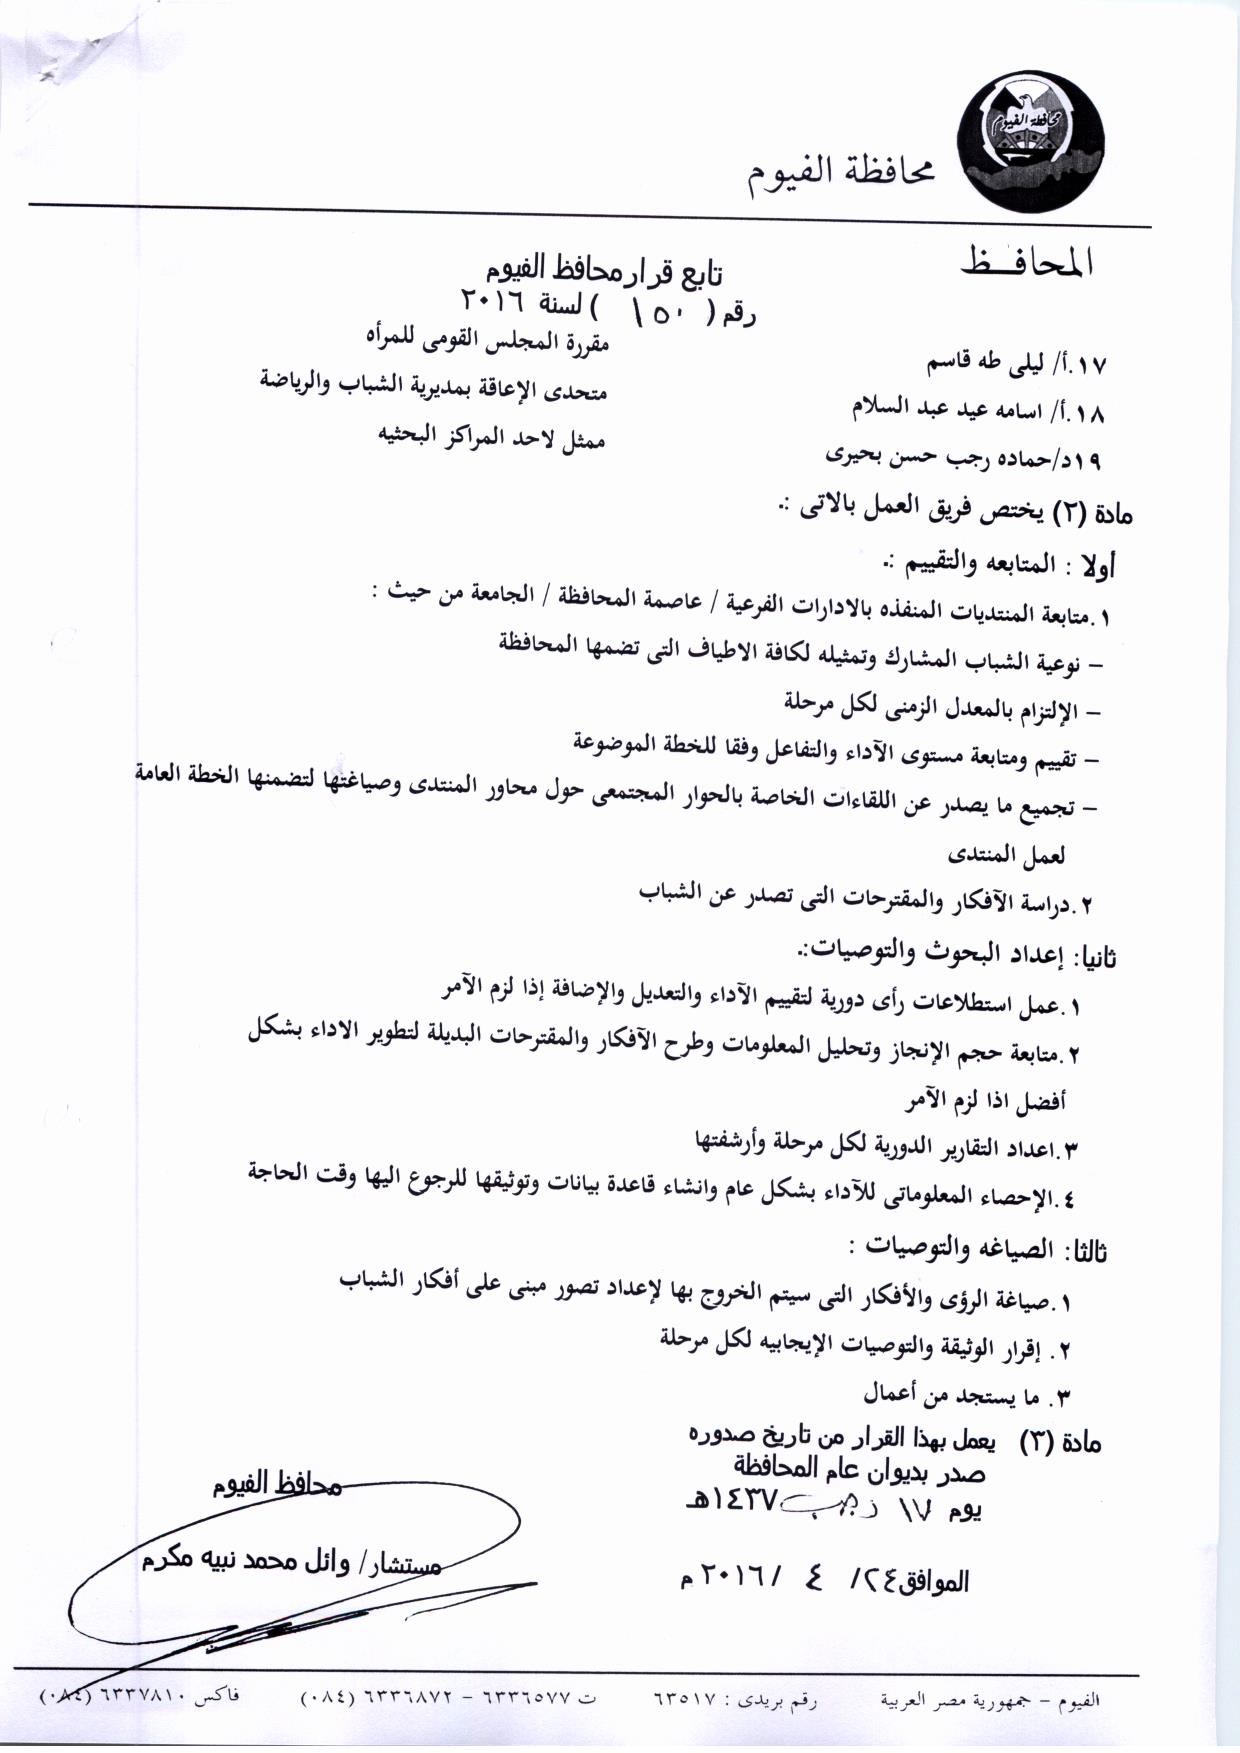 محافظة الفيوم
محافظة الفيوم
المحافـــظ
تابع قرار محافظ الفيوم
رقم ( ١٥٠ ) لسنة ٢٠١٦
١٧.أ/ ليلى طه قاسم مقررة المجلس القومى للمرأه
١٨.أ/ اسامه عيد عبد السلام متحدى الإعاقة بمديرية الشباب والرياضة
١٩د/حماده رجب حسن بحيرى ممثل لاحد المراكز البحثيه
مادة (٢) يختص فريق العمل بالاتى :.
أولا : المتابعه والتقييم :.
١.متابعة المنتديات المنفذه بالادارات الفرعية / عاصمة المحافظة / الجامعة من حيث :
– نوعية الشباب المشارك وتمثيله لكافة الاطياف التى تضمها المحافظة
– الإلتزام بالمعدل الزمنى لكل مرحلة
– تقييم ومتابعة مستوى الآداء والتفاعل وفقا للخطة الموضوعة
– تجميع ما يصدر عن اللقاءات الخاصة بالحوار المجتمعى حول محاور المنتدى وصياغتها لتضمنها الخطة العامة
لعمل المنتدى
٢.دراسة الآفكار والمقترحات التى تصدر عن الشباب
ثانيا: إعداد البحوث والتوصيات:.
١.عمل استطلاعات رأى دورية لتقييم الآداء والتعديل والإضافة إذا لزم الآمر
٢.متابعة حجم الإنجاز وتحليل المعلومات وطرح الآفكار والمقترحات البديلة لتطوير الاداء بشكل
أفضل اذا لزم الآمر
٣.اعداد التقارير الدورية لكل مرحلة وأرشفتها
٤.الإحصاء المعلوماتى للآداء بشكل عام وانشاء قاعدة بيانات وتوثيقها للرجوع اليها وقت الحاجة
ثالثا: الصياغه والتوصيات :
١.صياغة الرؤى والأفكار التى سيتم الخروج بها لإعداد تصور مبنى على أفكار الشباب
٢. إقرار الوثيقة والتوصيات الإيجابيه لكل مرحلة
٣. ما يستجد من أعمال
مادة (٣) يعمل بهذا القرار من تاريخ صدوره
صدر بديوان عام المحافظة
يوم ١٧ رجب ١٤٣٧هـ
الموافق٢٤/ ٤ /٢٠١٦ م
محافظ الفيوم
مستشار/ وائل محمد نبيه مكرم
الفيوم – جمهورية مصر العربية رقم بريدى : ٦٣٥١٧ ت ٦٣٣٦٥٧٧ – ٦٣٣٦٨٧٢ (٠٨٤) فاكس ٦٣٣٧٨١٠ (٠٨٤)